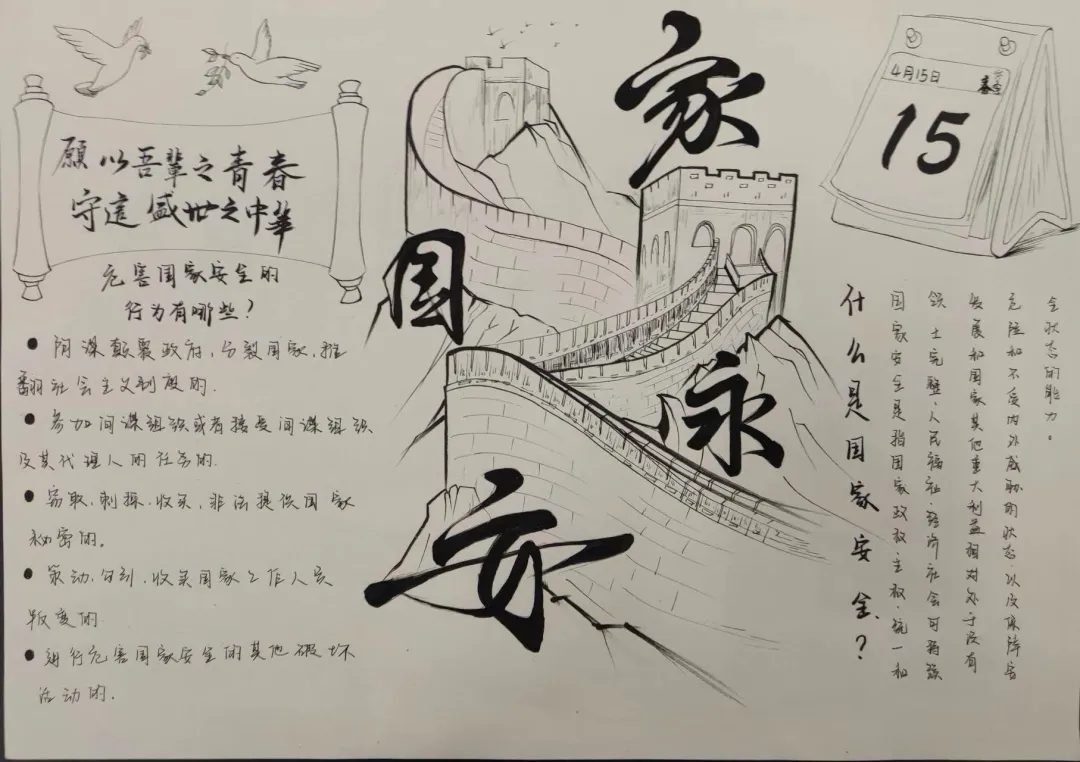 願以吾輩之青春
守這盛世之中華
危害国家安全的
行为有哪些?
● 阴谋颠覆政府,分裂国家,推
翻社会主义制度的.
● 参加间谍组织或者接受间谍组织
及其代理人的任务的.
● 窃取.刺探.收买.非法提供国家
秘密的。
● 策动.勾引.收买国家工作人员
叛变的
● 进行危害国家安全的其他破坏
活动的.
家
国
永
安
4月15日
15
什么是国家安全?
国家安全是指国家政权.主权.统一和
领土完整.人民福祉.经济社会可持续
发展和国家其他重大利益相对处于没有
危险和不受内外威胁的状态.以及保障安
全状态的能力。